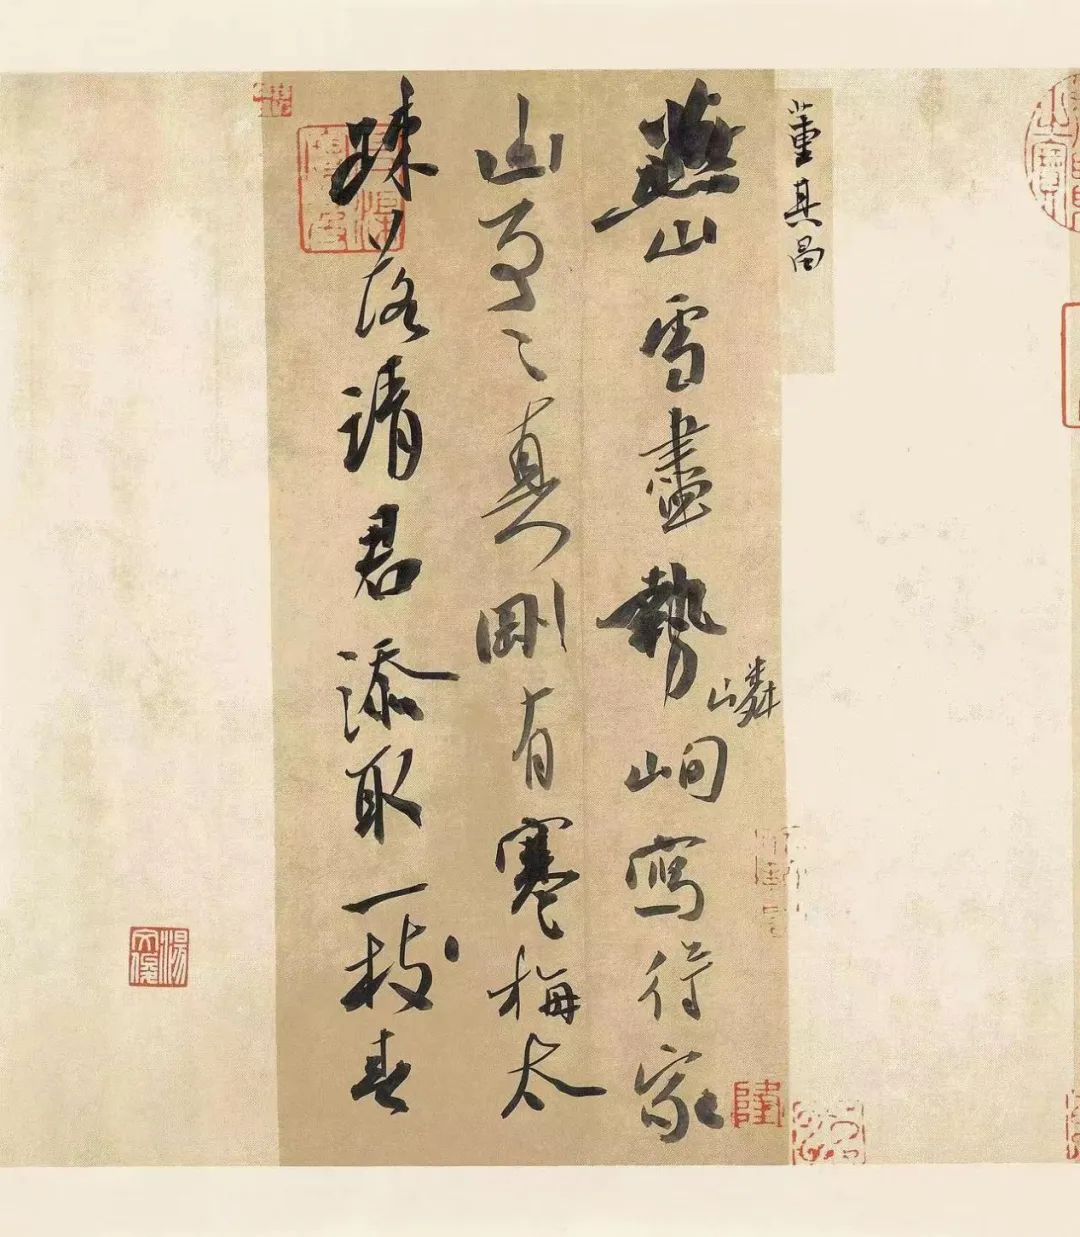 董其昌
燕山雪盡勢嶙峋寫得家
山事〻真剛有寒梅太
踈落請君添取一枝春